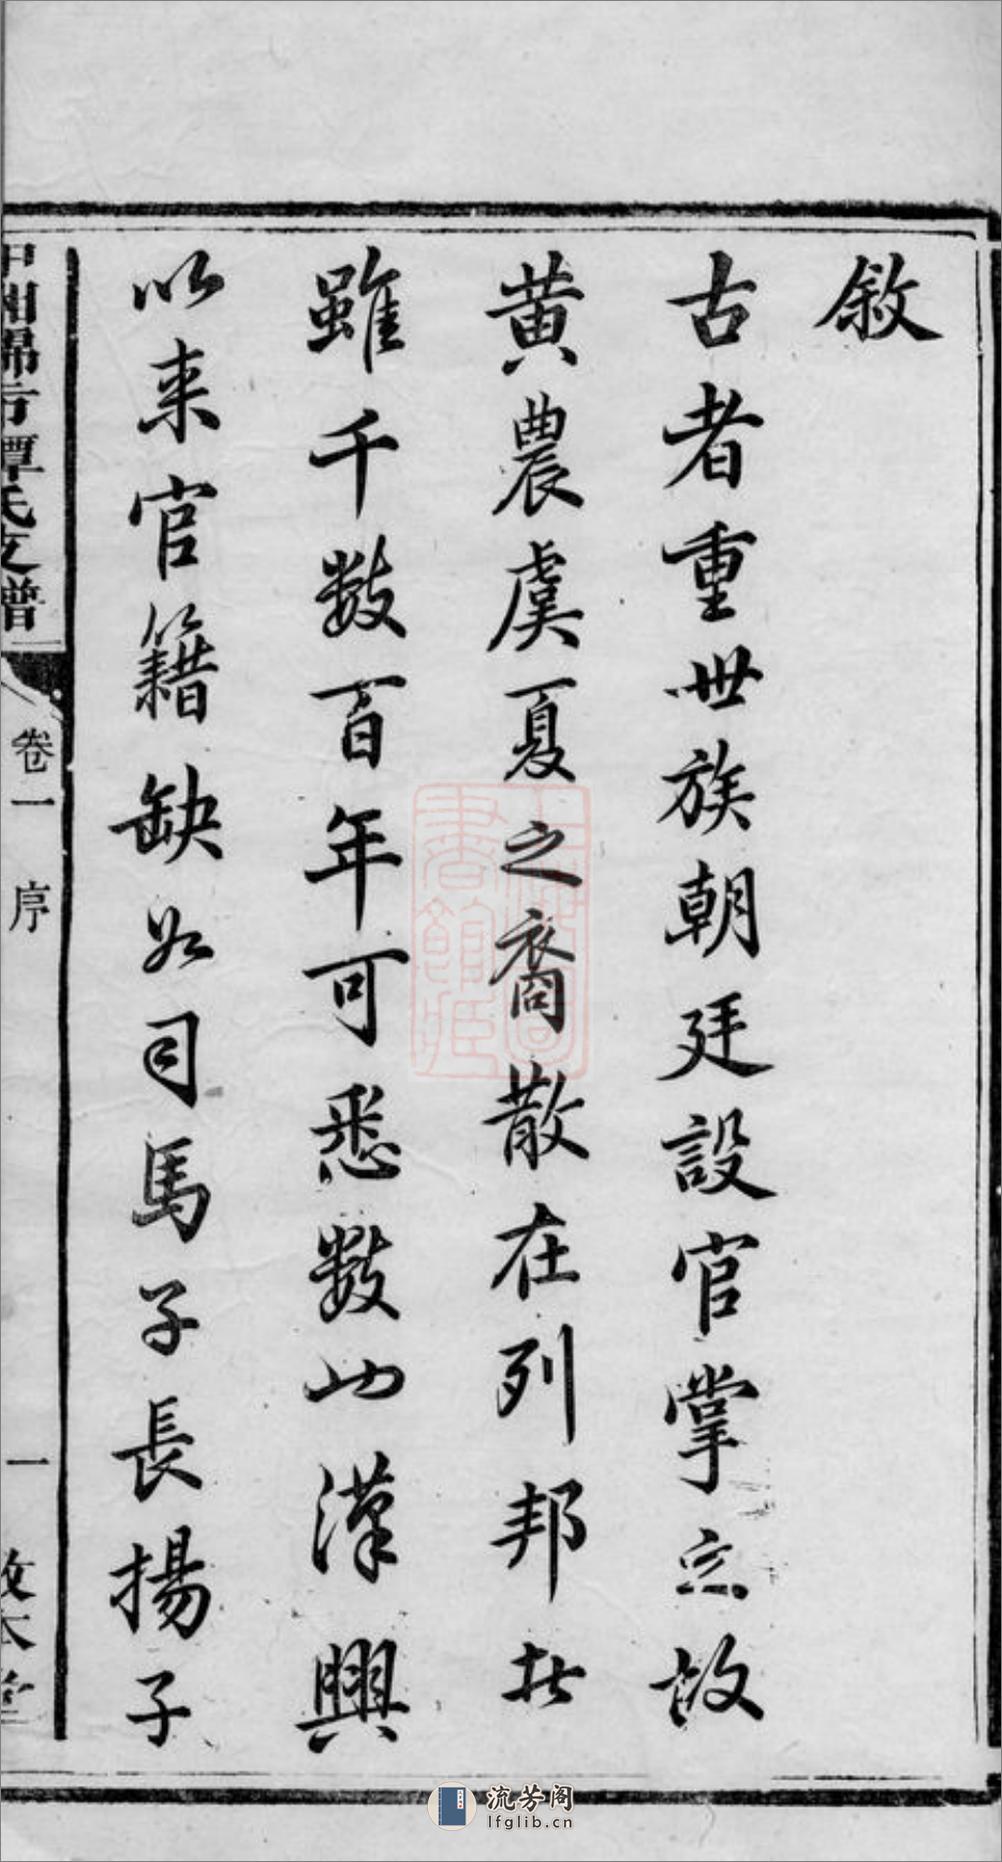 敘
古者重世族朝廷設官掌之故
黄農虞夏之裔散在列邦者
雖千數百年可悉數也漢興
以来官籍缺如司馬子長揚子
譚氏支譜
卷一
序
一
敦本堂
上海圖書館藏
流芳阁
lfglib.cn